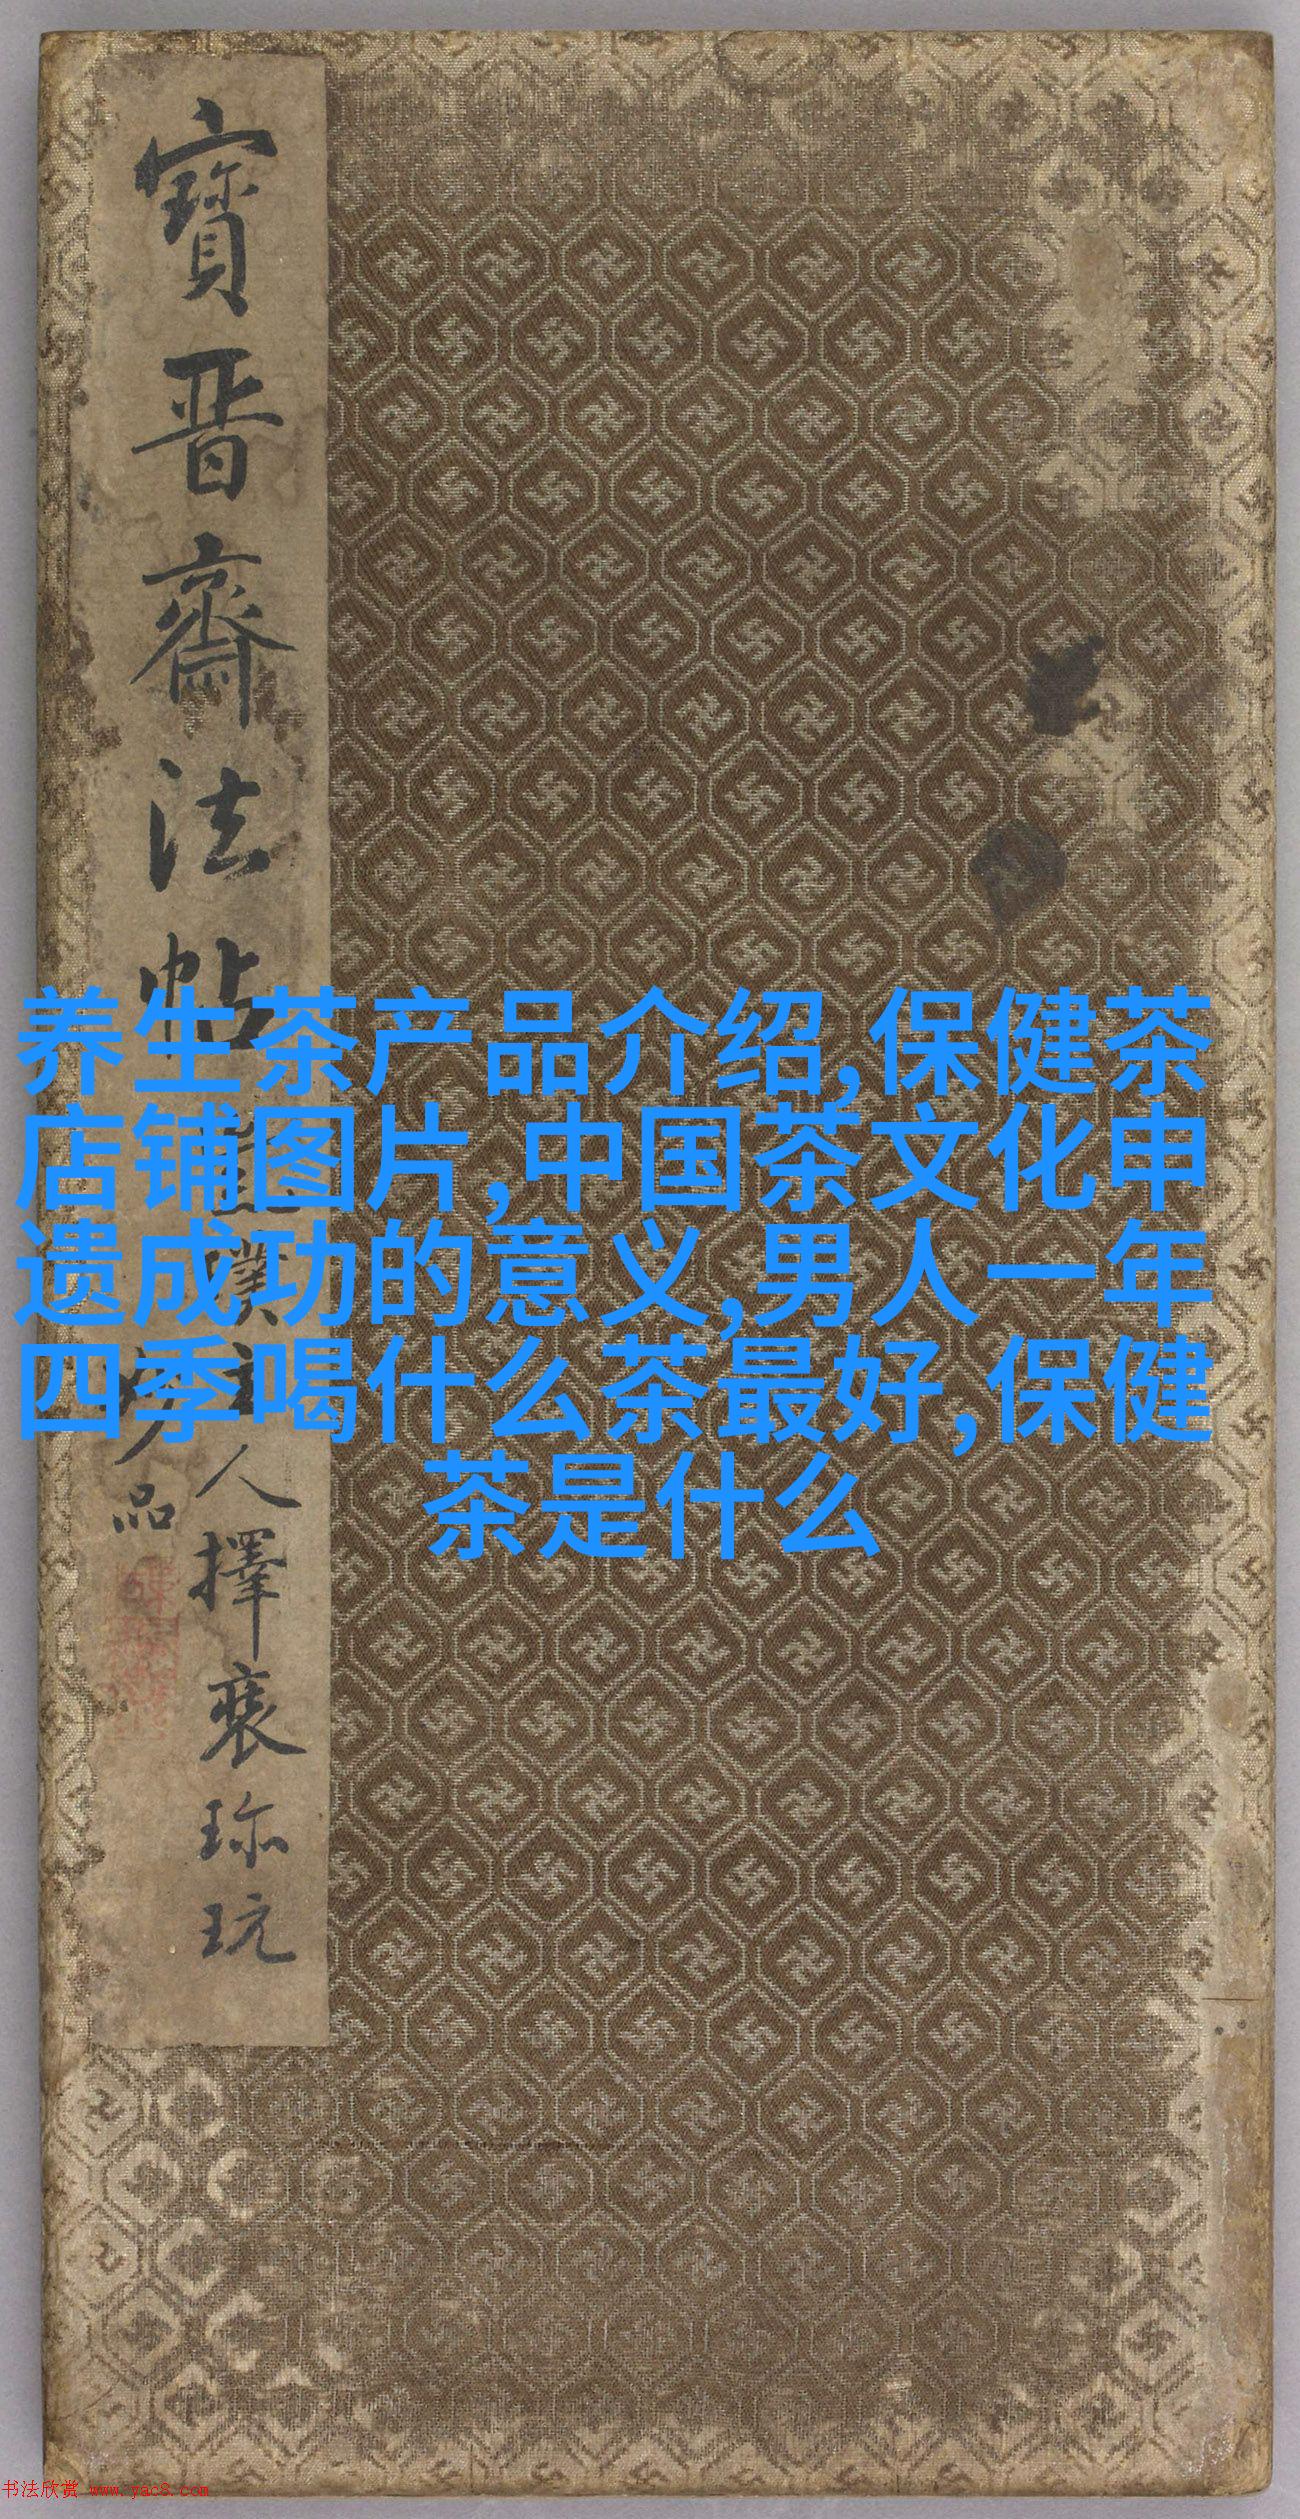 寶晉齋法帖
人擇裴珎玩
品
养生茶产品介绍,保健茶
店铺图片,中国茶文化申
遗成功的意义,男人一年
四季喝什么茶最好,保健
茶是什么
书法欣赏 www.yac8.com